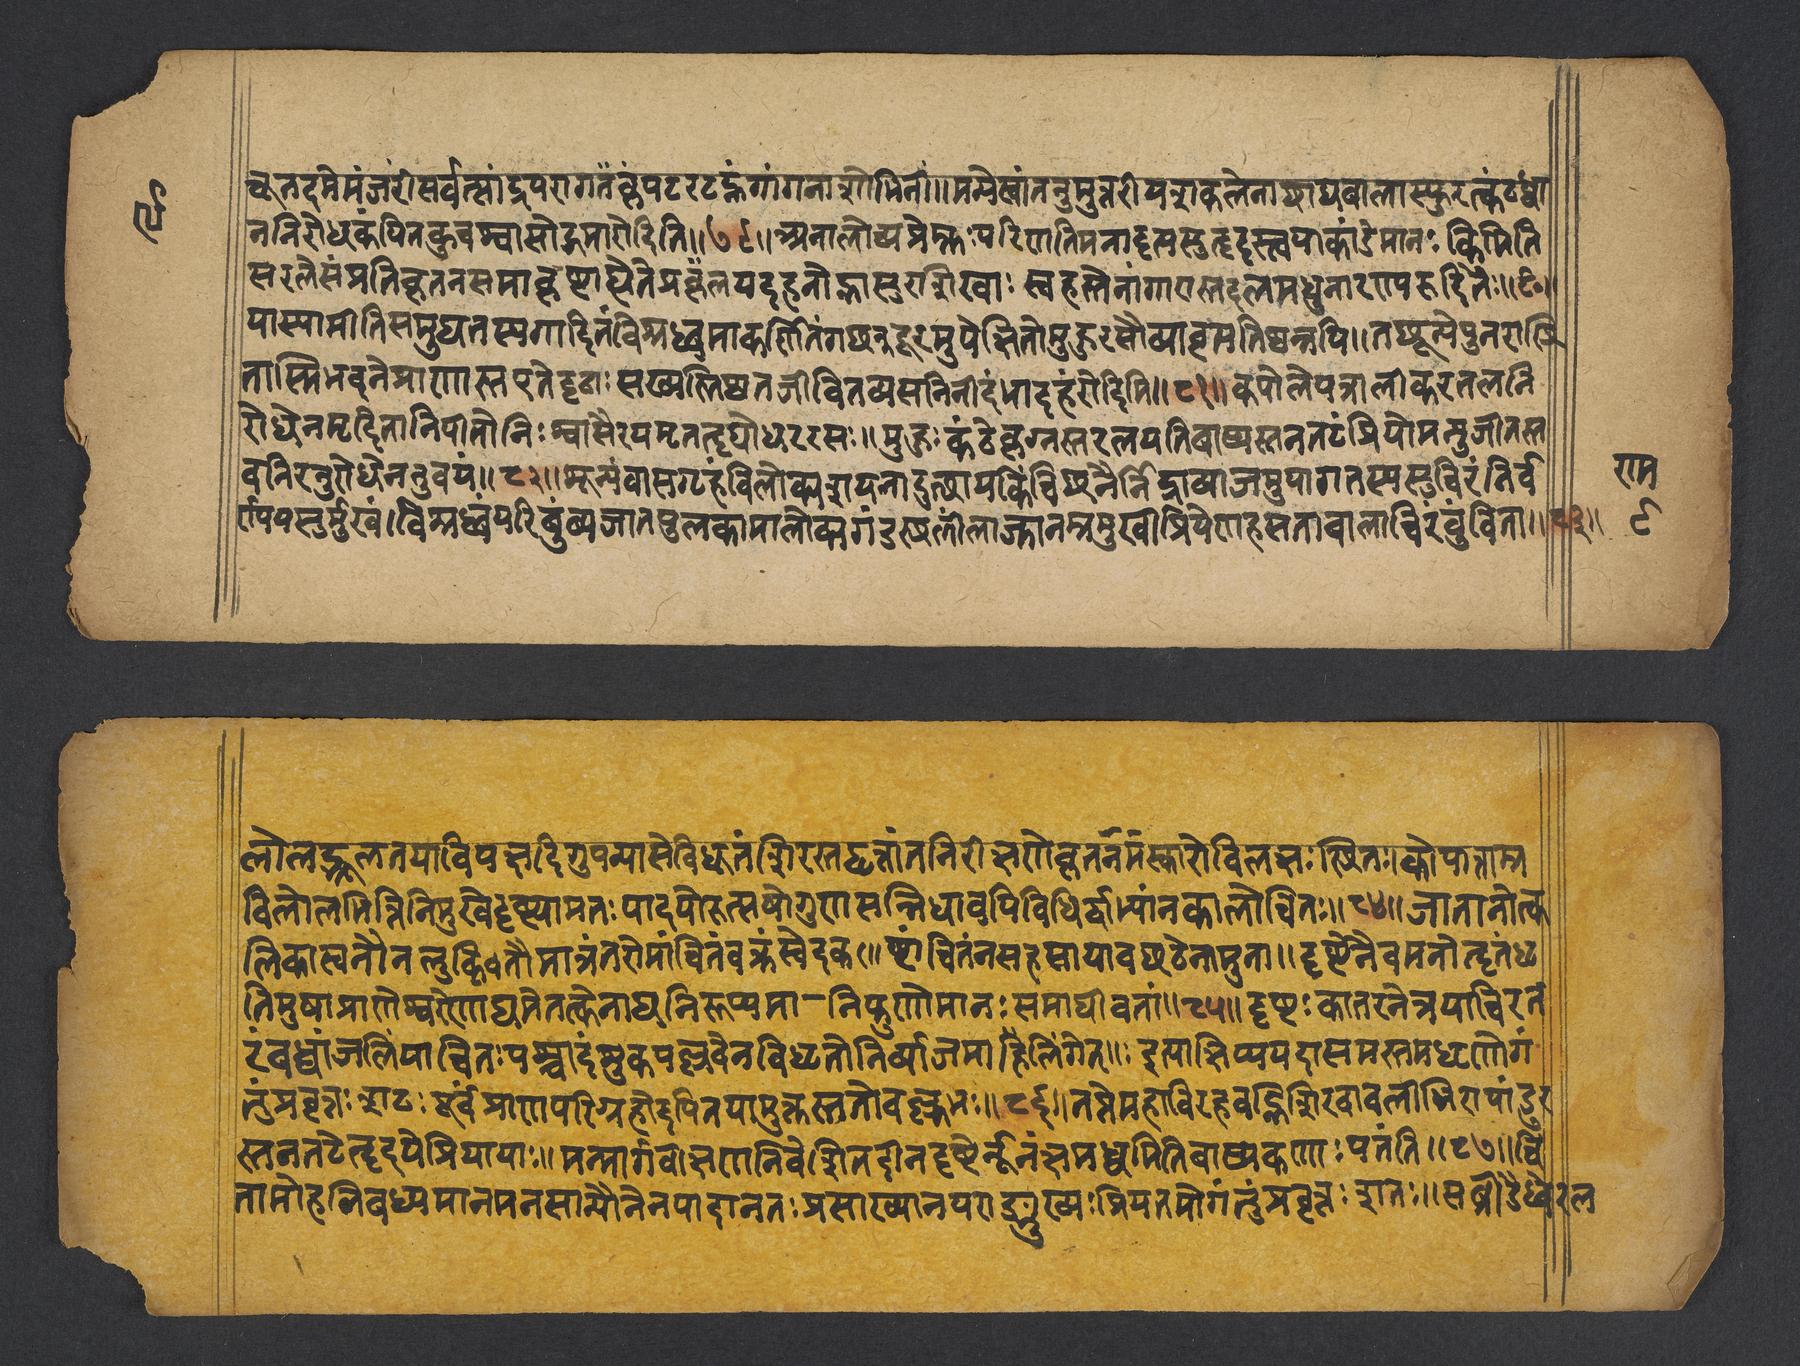 चूतद्रुमे मंजरी सर्वत्सांद्रपरागतलंपटरटद्भृंगांगनाशोभिनी॥ मन्ये स्वां तनुमुत्तरीयशकलेनाछाद्य बाला स्फुरत्कंठध्वा
ननिरोधकंपितकुचश्वासोद्गमारोदिति॥७९॥ अनालोच्य प्रेम्णः परिणतिमनादृत्य सुहृदस्त्वयाकांडे मानः किमिति
सरले संप्रति कृतः समाकृष्टा ह्येते प्रलयदहनोद्भासुरशिखाः स्वहस्तेनांगारास्तदलमधुनारण्यरुदितैः॥८०॥
यास्यामीति समुद्यतस्य गदितं विश्रब्धमाकर्णितं गछन्दूरमुपेक्षितो मुहुरसौ व्यावृत्य तिष्ठन्नपि॥ तछून्ये पुनरास्थि
तास्मि भवने प्राणास्त एते दृढाः सख्यस्तिष्ठत जीवितव्यसनिनी दंभादहं रोदिमि॥८१॥ कपोले पत्राली करतलनि
रोधेन मृदिता निपीतो निःश्वासैरयमृतहृद्योधररसः॥ मुहुः कंठे लग्नस्तरलयति बाष्पस्तनतटं प्रियो मन्युर्जातस्त
व निरनुरोधे न तु वयं॥८२॥ शून्यं वासगृहं विलोक्य शयनादुत्थाय किंचिछनैर्निद्राव्याजमुपागतस्य सुचिरं निर्व
र्ण्य पत्युर्मुखं। विश्रब्धं परिचुंब्य जातपुलकामालोक्य गंडस्थलीं लज्जानम्रमुखी प्रियेण हसता बाला चिरं चुंबिता॥८३॥
राम
९
लोलद्भ्रूलतया विपक्षदिगुपन्यासे विधूतं शिरस्तद्वृत्तांतनिरीक्षणे कृतनमस्कारो विलक्षः स्थितः। कोपात्ताम्र
विलोलभित्तिनि मुखे दृष्ट्या मतः पादयोरुत्सृष्टो गुरुसन्निधावपि विधिर्द्वाभ्यां न कालोचितः॥८४॥ जाता नोत्क
लिका स्तनौ न लुलितौ गात्रं न रोमांचितं वक्त्रं स्वेदकणांचितं न सहसा यावछठेनामुना॥ दृष्टेनैव मनो हृतं धृ
तिमुषा प्राणेश्वरेणाद्य मे तत्केनाद्य निरूप्यमानिपुणो मानः समाधीयतां॥८५॥ दृष्टः कातरनेत्रया चिरत
रं बध्वांजलिं याचितः पश्चादंशुकपल्लवेन विधृतो निर्व्याजमालिंगितः॥ इत्याक्षिप्य यदा समस्तमघृणो गं
तुं प्रवृत्तः शठः पूर्वं प्राणपरिग्रहो दयितया मुक्तस्ततो वल्लभः॥८६॥ तप्ते महाविरहवह्निशिखावलीभिरापांडुर
स्तनतटे हृदये प्रियायाः॥ मन्मार्गवीक्षणनिवेशितदीनदृष्टेर्नूनं छमछमिति बाष्पकणाः पतंति॥८७॥ चिं
तामोहनिबध्यमानमनसा मौनेन पादानतः प्रत्याख्यानपराङ्मुखः प्रियतमो गंतुं प्रवृत्तः शठः॥ सव्रीडैरल